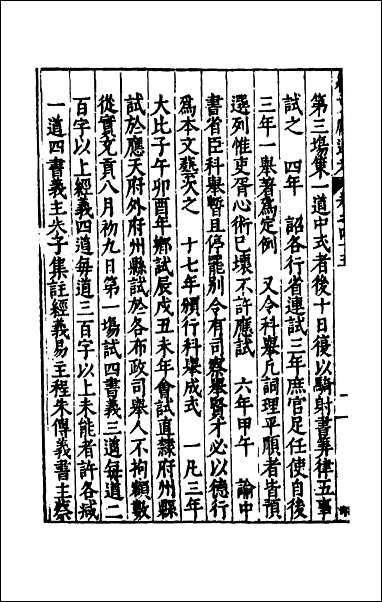 第三塲集一道中式者後十日復以騎射書筭律五事
試之　四年　詔各行省連試三年庶官足任使自後
三年一舉著爲定例　又令科舉凡詞理平順者皆預
選列惟吏胥心術已壞不許應試　六年甲午　諭中
書省臣科舉暫且停罷别令有司察舉賢才必以德行
爲本文藝次之　十七年頒行科塲成式　一凡三年
大比子午卯酉年鄉試辰戌丑未年會試直隸府州縣
試於應天府外府州縣試於各布政司舉人不拘額數
從實充貢八月初九日第一塲試四書義三道每道二
百字以上經義四道每道三百字以上未能者許各减
一道四書義主朱子集註經義易主程朱傳義書主蔡